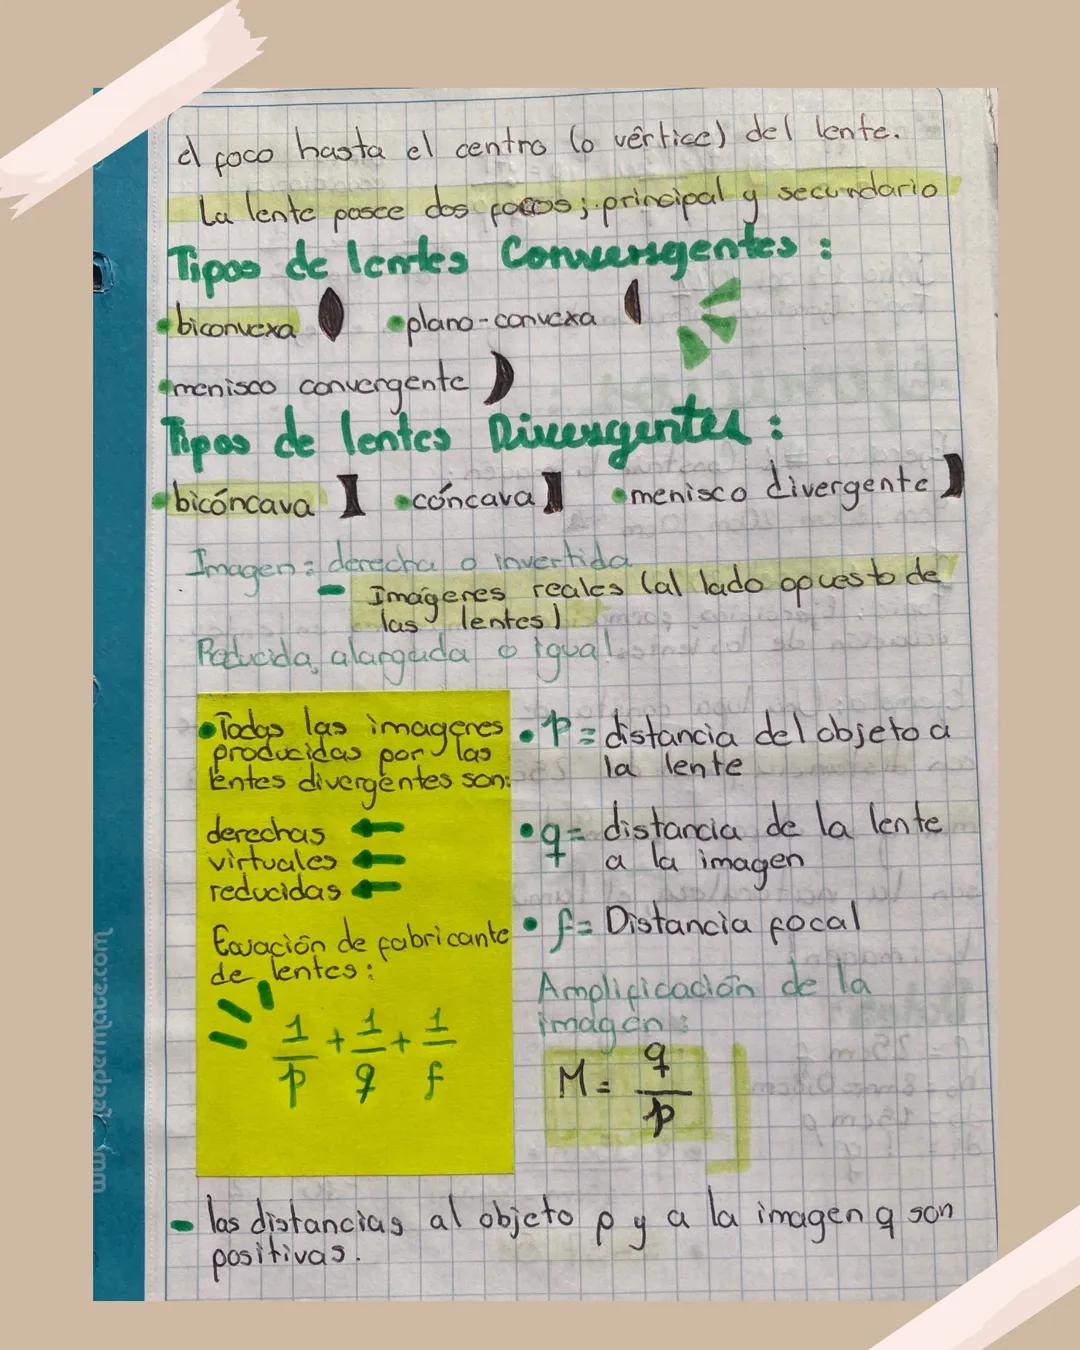 el foco hasta el centro (o vértice) del lente.
La lente posee dos focos; principal y secundario
Tipos de lentes Convergentes :
•biconvexa •plano-convexa
•menisco convergente
Tipos de lentes Divergentes :
•bicóncava •cóncava •menisco divergente
Imagen: derecha o invertida
- Imágenes reales (al lado opuesto de
las lentes)
Reducida, alargada o igual.
•Todas las imagenes
producidas por las
lentes divergentes son:
derechas
virtuales
reducidas
Ecuación de fabricante
de lentes:
1/p + 1/q + 1/f
•p = distancia del objeto a
la lente
•q = distancia de la lente
a la imagen
•f = Distancia focal
Amplificación de la
imagen :
M = q/p
- las distancias al objeto p y a la imagen q son
positivas.